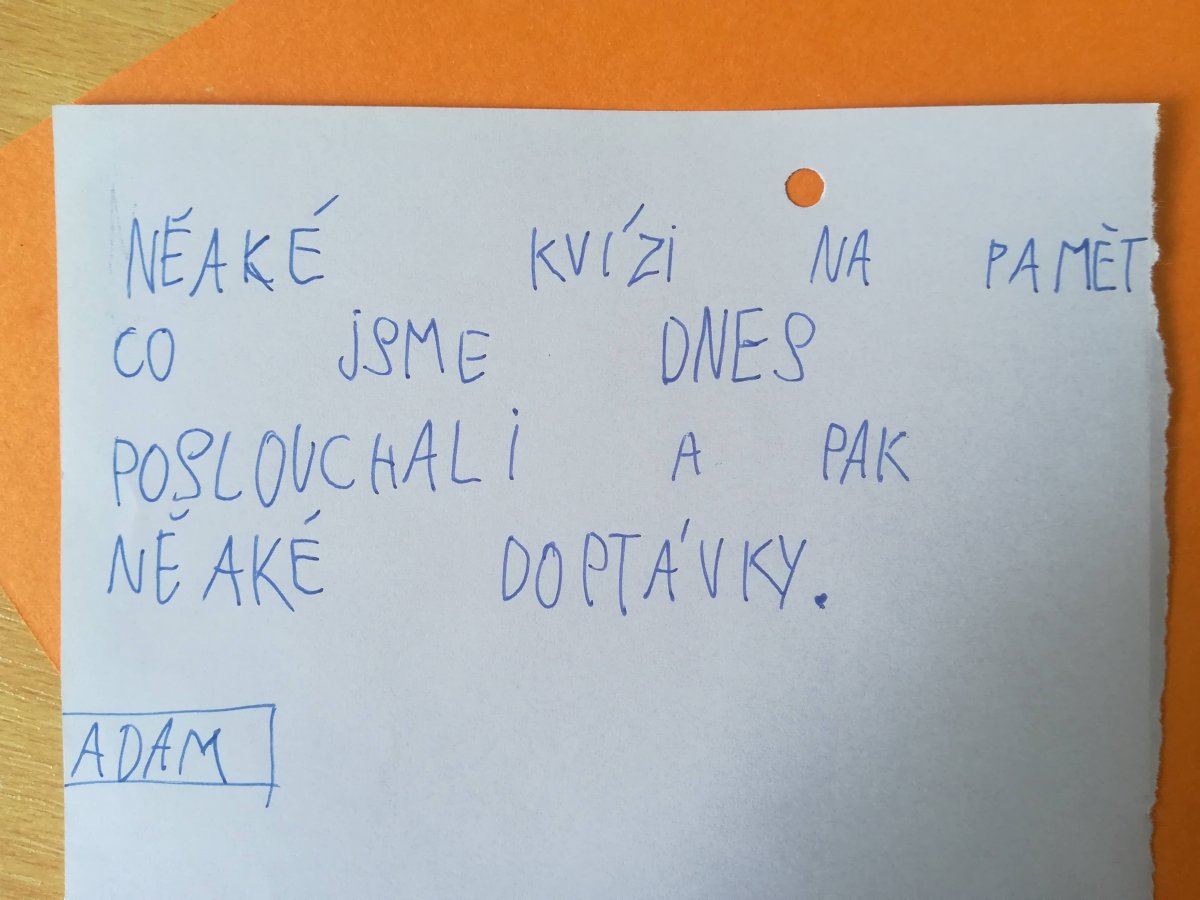 NĚAKÉ KVÍZI NA PAMĚT
CO JSME DNES
POSLOUCHALI A PAK
NĚAKÉ DOPTÁVKY.
ADAM